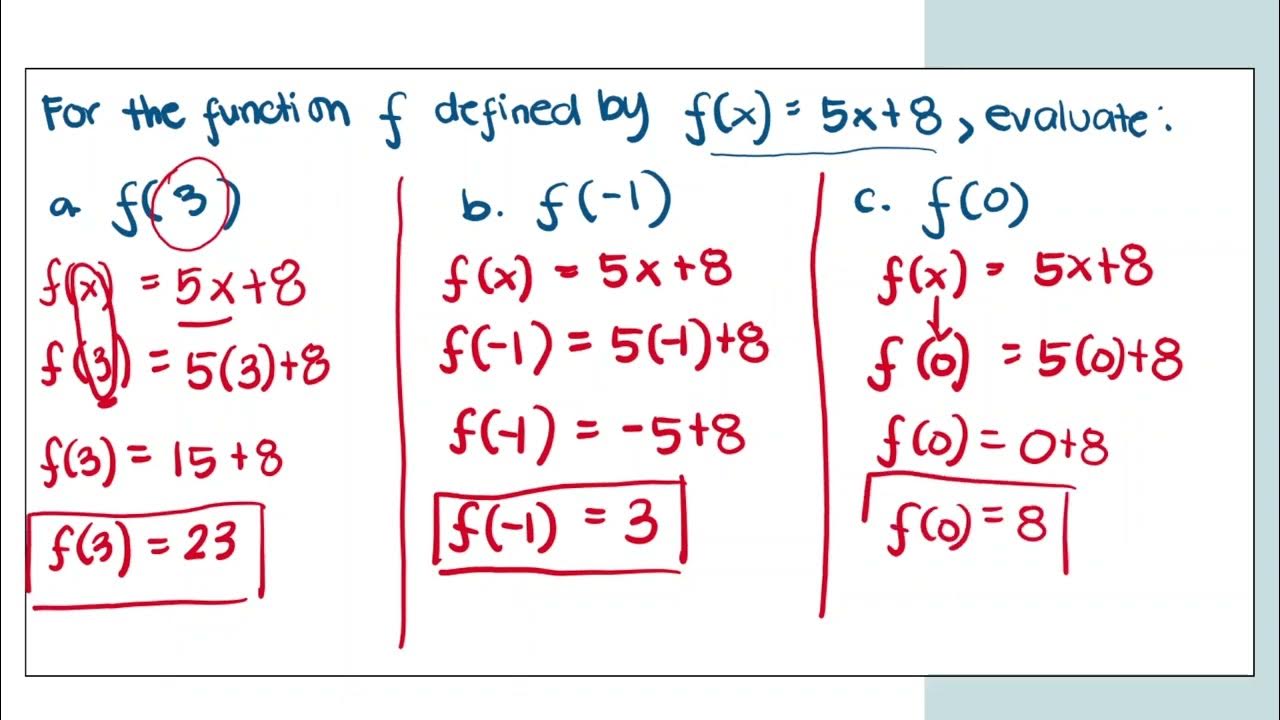 For the function f defined by f(x) = 5x+8, evaluate:
a. f(3)
f(x) = 5x+8
f(3) = 5(3)+8
f(3) = 15+8
f(3) = 23
b. f(-1)
f(x) = 5x+8
f(-1) = 5(-1)+8
f(-1) = -5+8
f(-1) = 3
c. f(0)
f(x) = 5x+8
f(0) = 5(0)+8
f(0) = 0+8
f(0) = 8